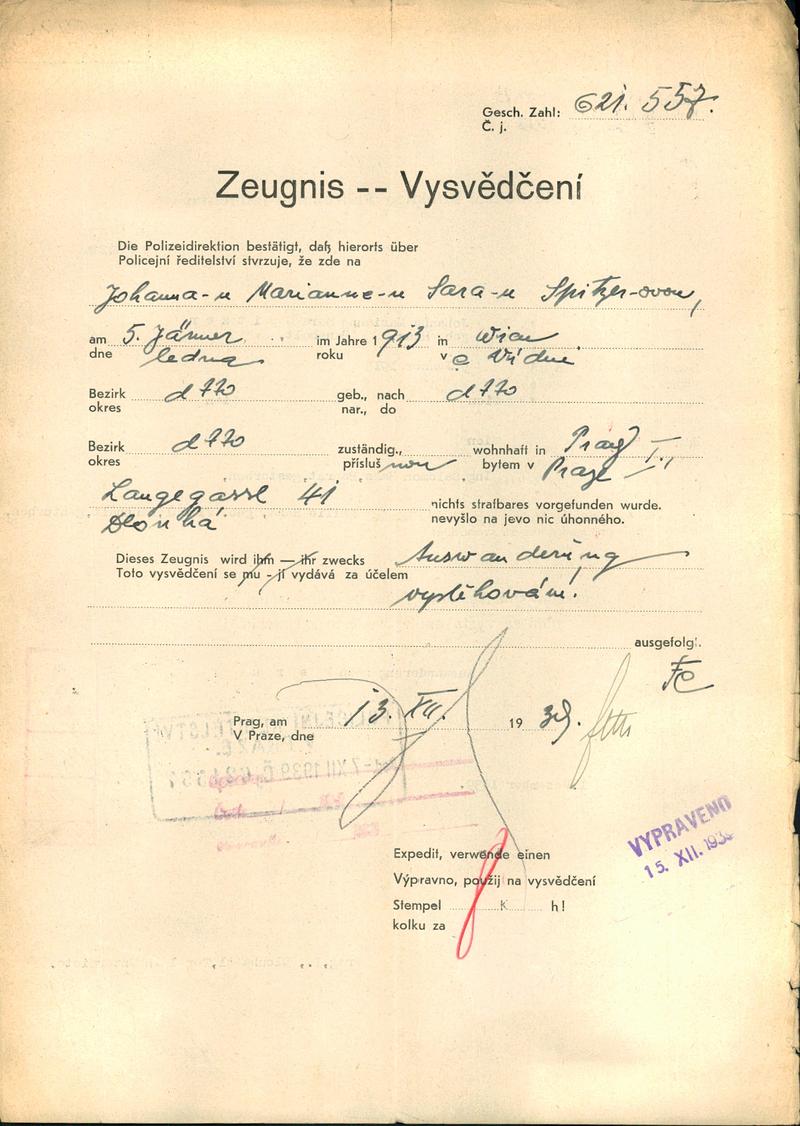 Gesch. Zahl: 621.557.
Č. j.
Zeugnis -- Vysvědčení
Die Polizeidirektion bestätigt, daß hierorts über
Policejní ředitelství stvrzuje, že zde na
Johanna-u Marianne-u Sara-u Spitzer-ovou,
am 5. Jänner im Jahre 1913 in Wien
dne ledna roku v e Vídni
Bezirk dtto geb., nach dtto
okres nar., do
Bezirk dtto zuständig., wohnhaft in Prag I.,
okres příslušnou bytem v Praze
Langegasse 41 nichts strafbares vorgefunden wurde.
Dlouhá nevyšlo na jevo nic úhonného.
Dieses Zeugnis wird ihm — ihr zwecks Auswanderung
Toto vysvědčení se mu - jí vydává za účelem
vystěhování
ausgefolgt.
Prag, am 13. XII. 1939.
V Praze, dne
VYPRAVENO
15. XII. 1939
Expedit, verwende einen
Výpravno, použij na vysvědčení
Stempel K h!
kolku za